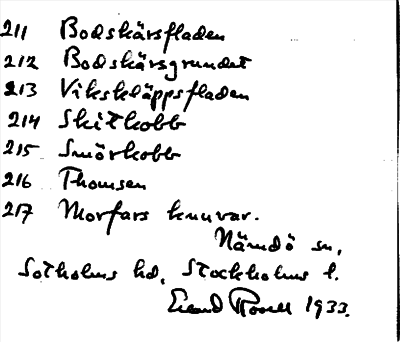 211 Bodskärsfladen
212 Bodskärsgrundet
213 Vikskläppsfladen
214 Skitkobb
215 Smörkobb
216 Thomsen
217 Morfars knuvar.
Nämdö sn,
Sotholms hd, Stockholms l.
1933.